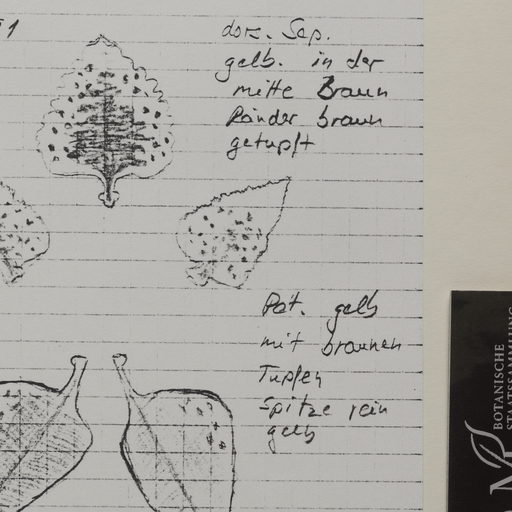 dors. Sep.
gelb. in der
mitte Braun
Ränder braun
getupft
Pet. gelb
mit braunen
Tupfen
Spitze rein
gelb
BOTANISCHE
STAATSSAMMLUNG
M